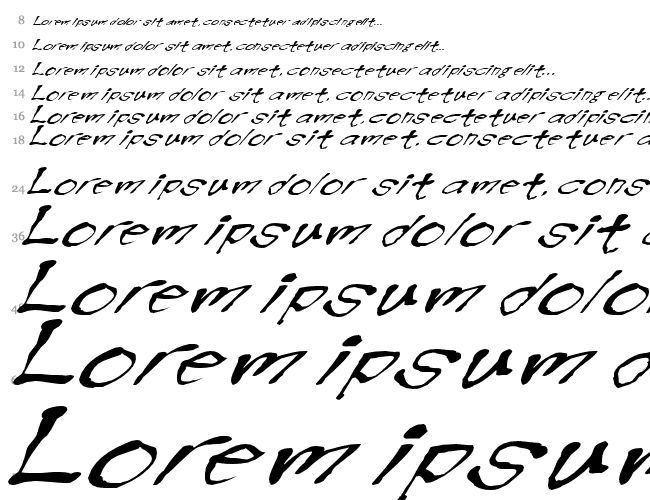 8 Lorem ipsum dolor sit amet, consectetuer adipiscing elit...
10 Lorem ipsum dolor sit amet, consectetuer adipiscing elit...
12 Lorem ipsum dolor sit amet, consectetuer adipiscing elit...
14 Lorem ipsum dolor sit amet, consectetuer adipiscing elit..
16 Lorem ipsum dolor sit amet, consectetuer adipiscin
18 Lorem ipsum dolor sit amet, consectetuer a
24 Lorem ipsum dolor sit amet, cons
36 Lorem ipsum dolor sit
Lorem ipsum dolo
Lorem ipsum
Lorem ipsum